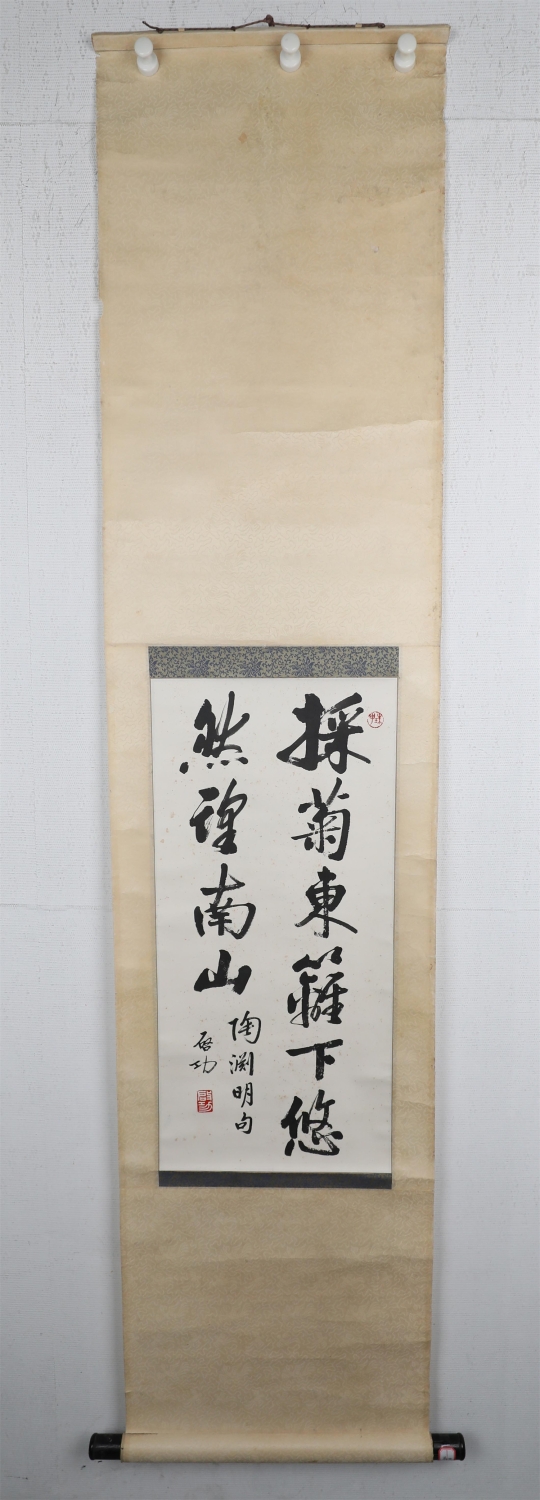 採菊東籬下悠
然望南山
陶淵明句
啓功